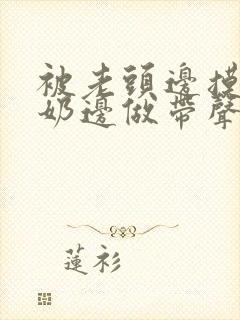 被老頭邊摸
奶邊做帶聲
蓮衫